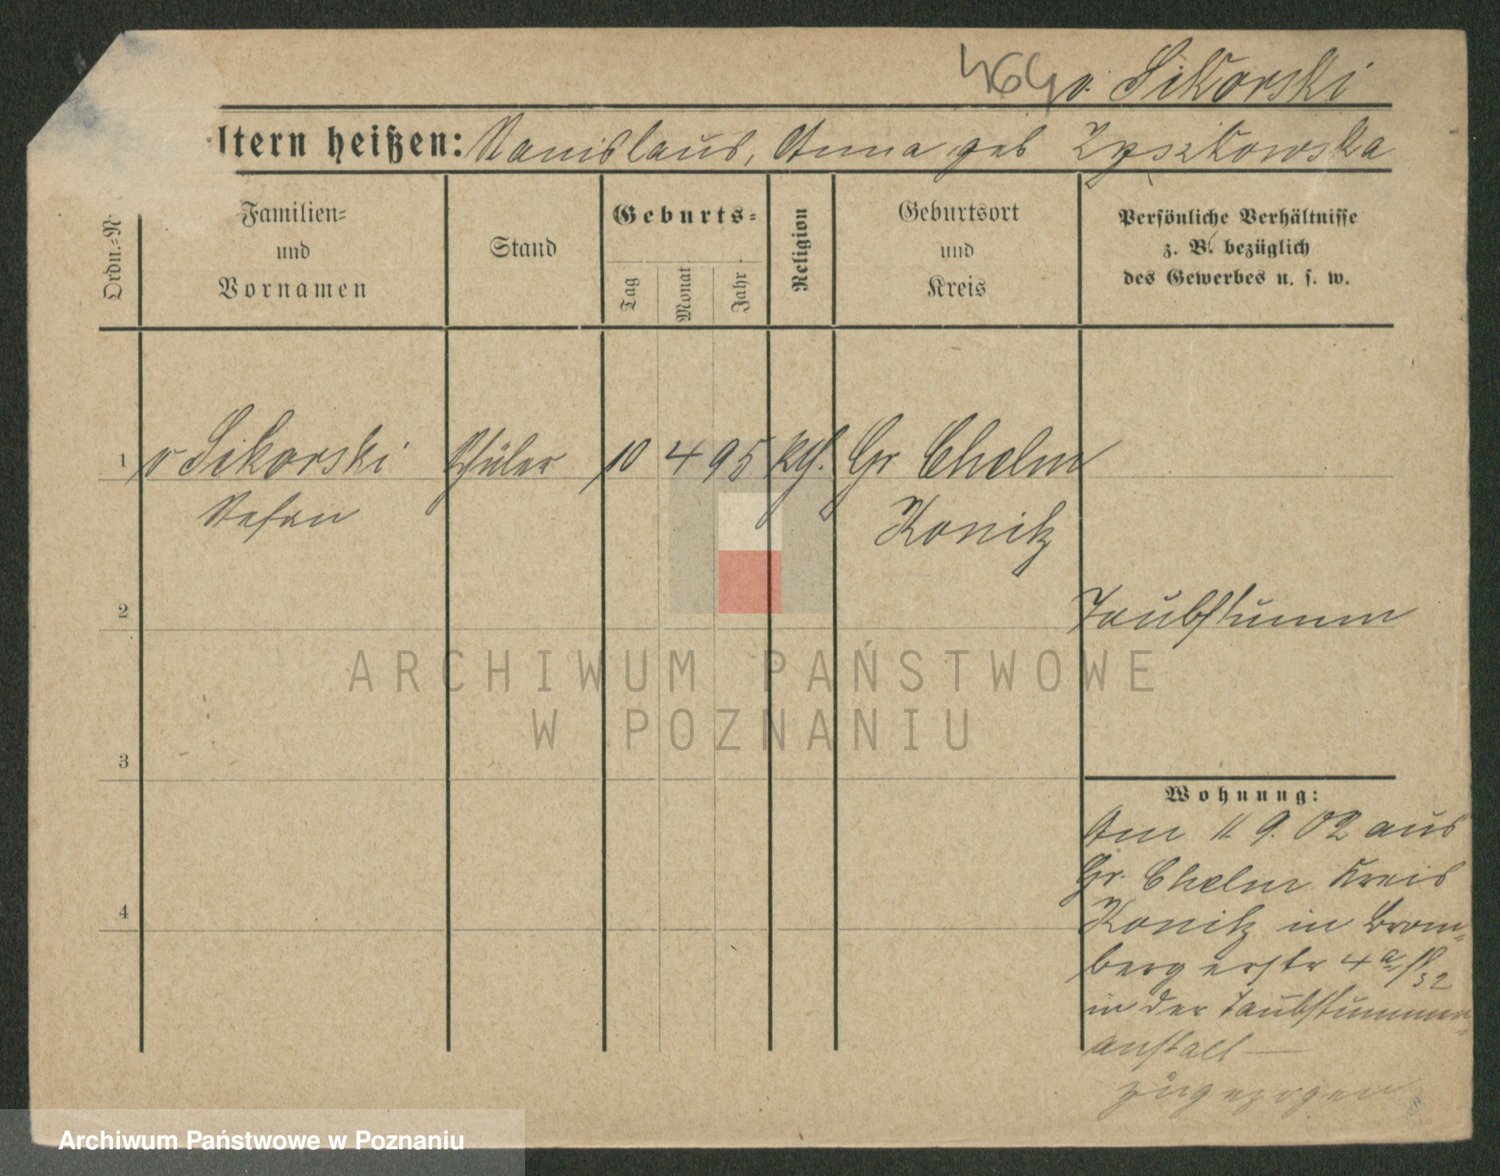 v. Sikorski
ltern heißen: Stanislaus, Anna geb Zyszkowska
Ordn.=N
Familien=
und
Vornamen
Stand
Geburts=
Tag
Monat
Jahr
Religion
Geburtsort
und
Kreis
Persönliche Verhältnisse
z. B. bezüglich
des Gewerbes u. s. w.
1 v Sikorski Schüler 10 4 95 kth. Gr Chelm
Stefan Konitz
2
Taubstumm
3
4
Wohnung:
Am 11. 9. 02 aus
Gr. Chelm Kreis
Konitz in Brom-
berg erstr 4a
32
in der Taubstummen-
anstalt —
zugezogen
ARCHIWUM PAŃSTWOWE
W POZNANIU
Archiwum Państwowe w Poznaniu